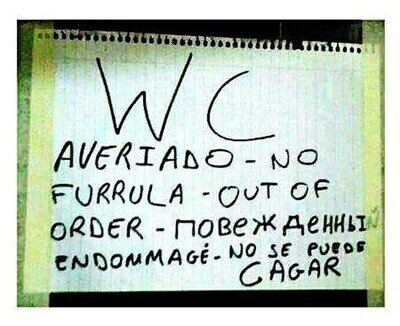 WC
AVERIADO - NO
FURRULA - OUT OF
ORDER - ПОВЕЖДЕННЫЙ
ENDOMMAGÉ - NO SE PUEDE
CAGAR